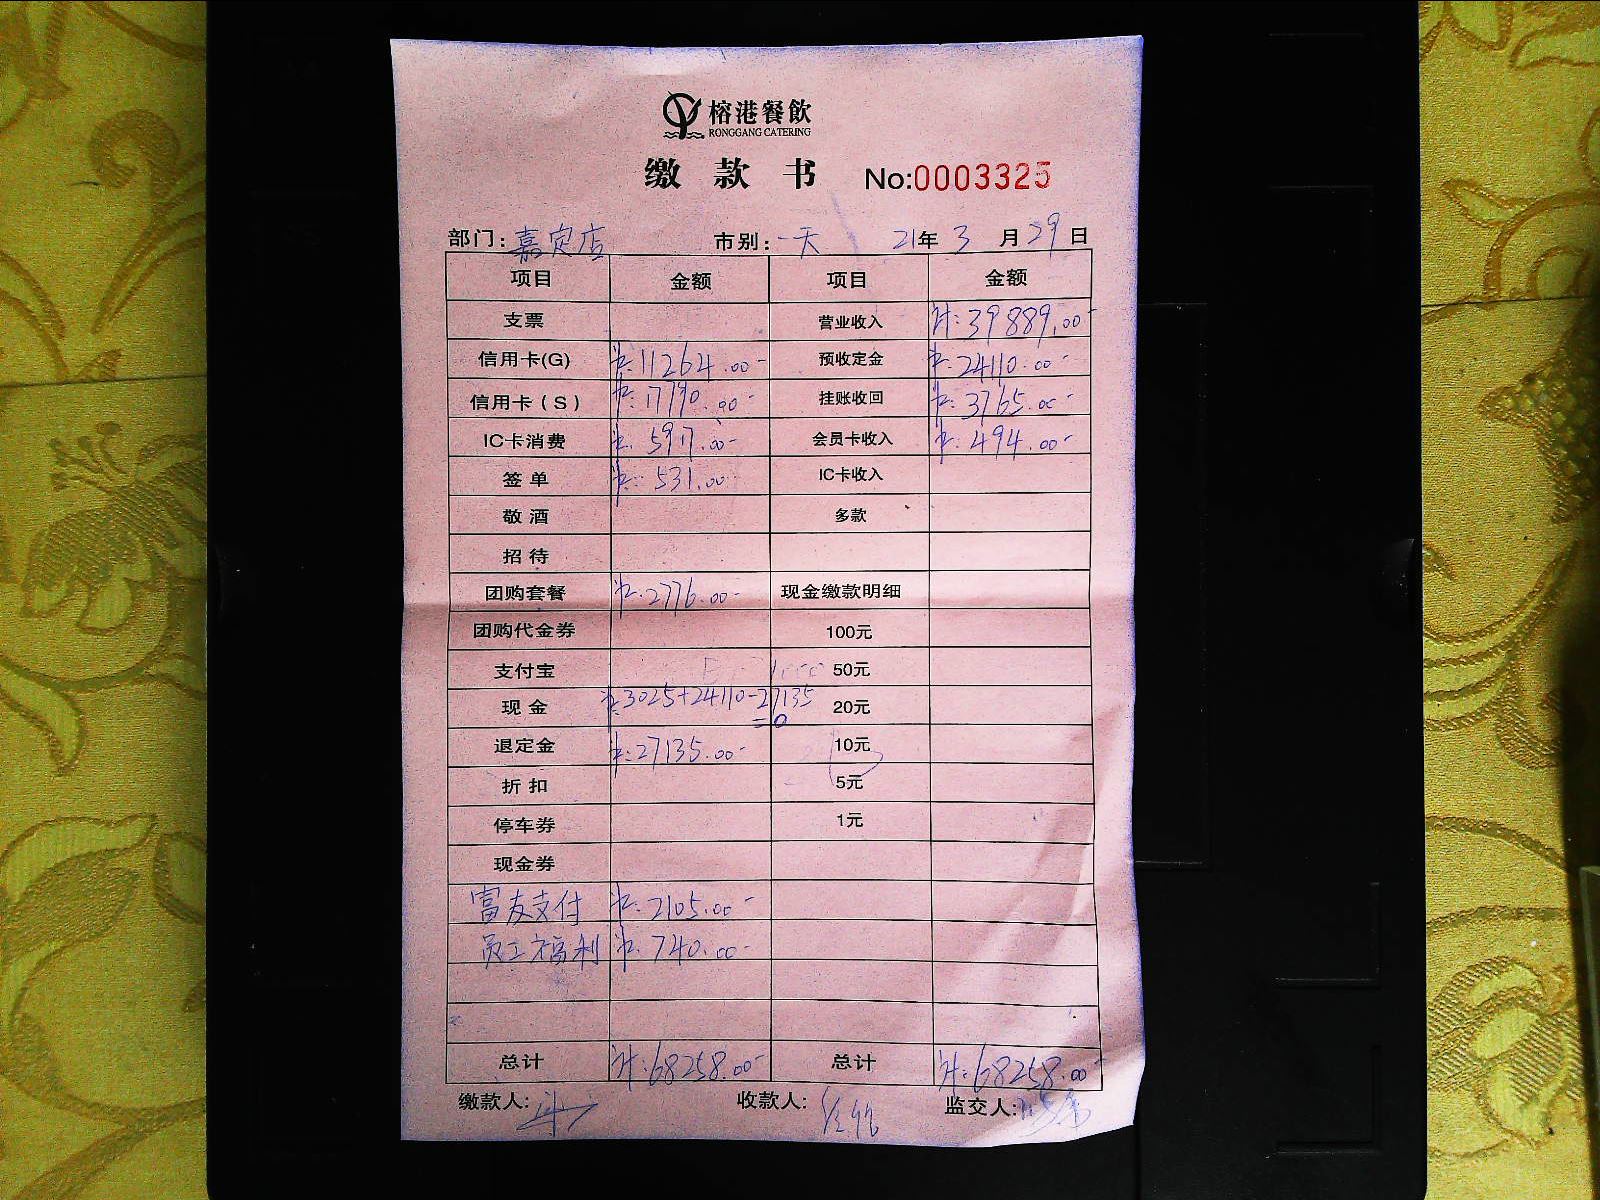 榕港餐飲
RONGGANG CATERING
缴款书 No:0003325
部门: 嘉定店 市别: 一天 21年 3月 29日
项目 金额 项目 金额
支票 营业收入 计: 39889.00-
信用卡(G) 卡: 11264.00- 预收定金 卡: 24110.00-
信用卡(S) 卡: 17790.00- 挂账收回 卡: 3765.00-
IC卡消费 卡: 5917.00- 会员卡收入 卡: 494.00-
签单 卡: 531.00- IC卡收入
敬酒 多款
招待
团购套餐 卡: 2776.00- 现金缴款明细
团购代金券 100元
支付宝 50元
现金 卡: 3025+24110-27135=0 20元
退定金 卡: 27135.00- 10元
折扣 5元
停车券 1元
现金券
富友支付 卡: 2105.00-
员工福利 卡: 740.00-
总计 计: 68258.00- 总计 计: 68258.00-
缴款人: 收款人: 监交人: